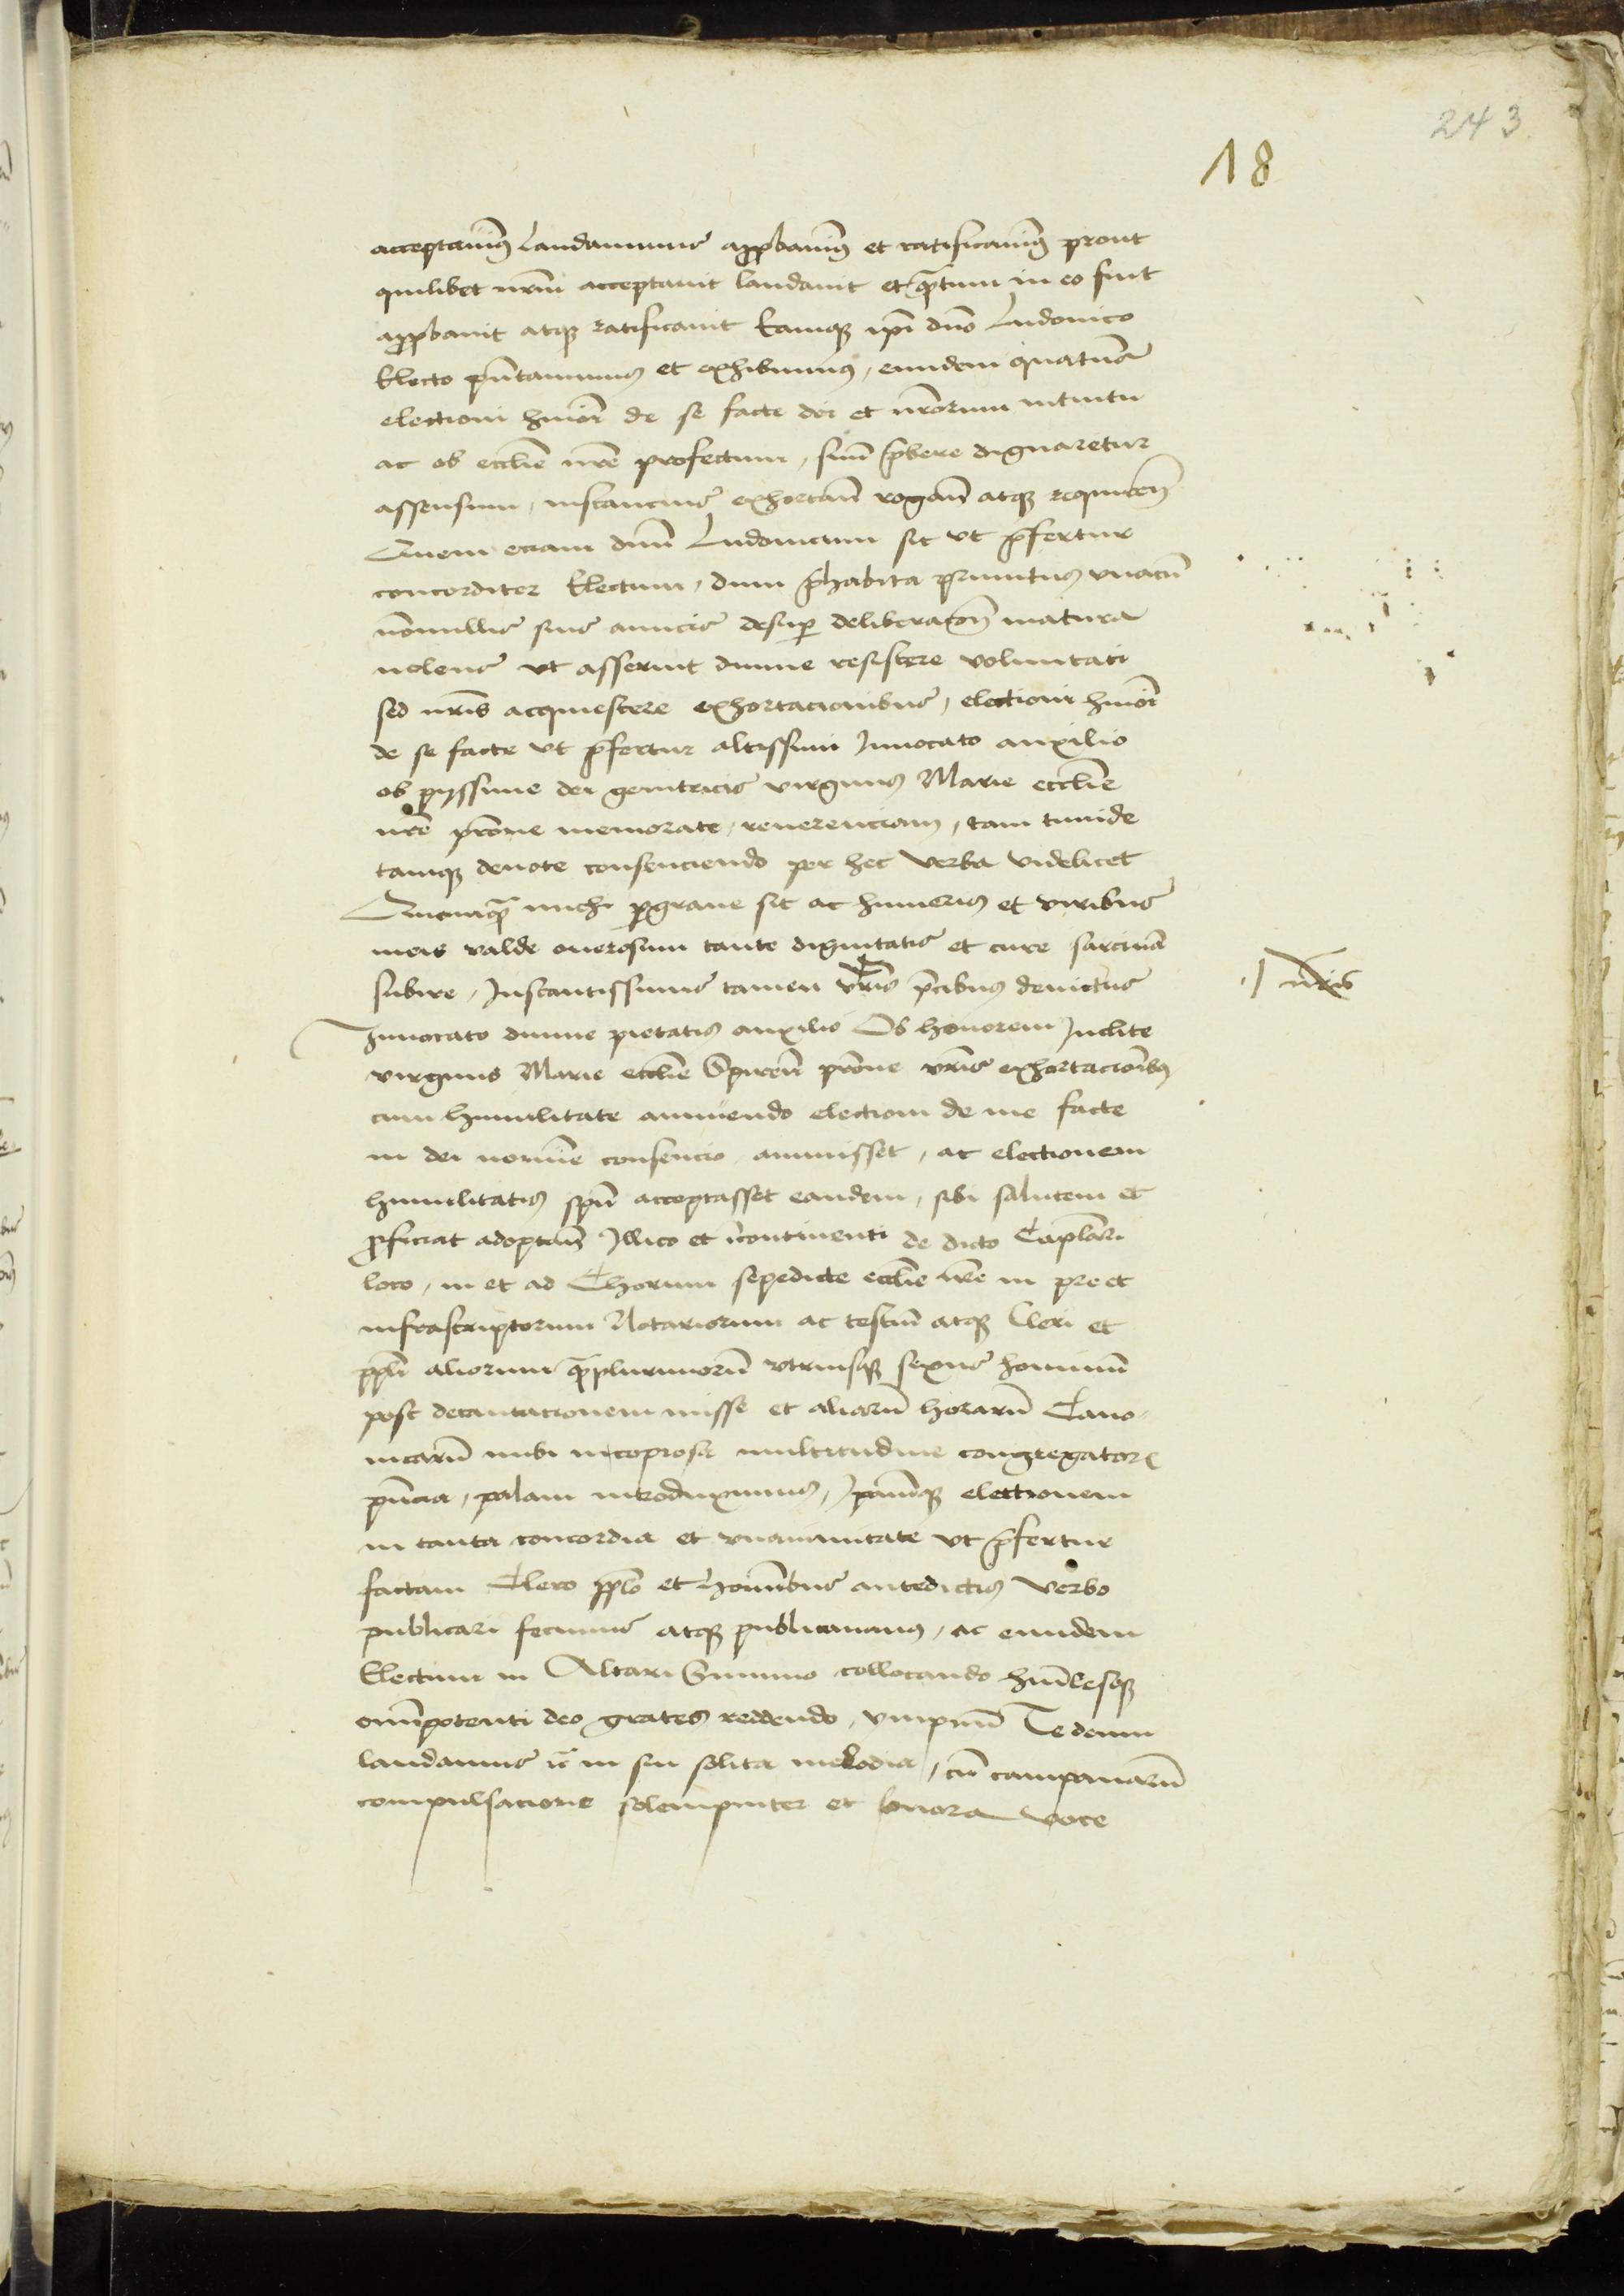 243
18
acceptauim9 Laudauimus approbauim9 et ratificauim9 prout
quilibet nr̄m acceptauit laudauit et qua̅tum in eo fuit
approbauit atq3 ratificauit Eamq3 ip̄i dn̄o Ludouico
Electo pn̄tauimus et exhibuimus, eundem quatin9
electioni hmōi de se facte dei et nr̄orum intuitu
ac ob eccl̄ie nr̄e profectum, suū p̄bere dignaretur
assensum, instancius exhortan̄ rogan̄ atq3 requiren̄
Quem eciam dn̄m Ludouicum sic vt p̄fertur
concorditer Electum, dum p̄habita primitus vnacū
nōnullis suis amicis desup deliberacōe matura
nolens vt asseruit diuine resistere voluntati
sed nr̄is acquiescere exhortacionibus, electioni hmōi
de se facte vt p̄fertur altissimi Inuocato auxilio
ob pijssime dei genitricis virginis Marie eccl̄ie
nr̄e pr̄one memorate, reuerenciam, tam timide
tamq3 deuote consenciendo per hec verba videlicet
Quamq̄ mich̄ pgraue sit ac humeris et viribus
meis valde onerosum tante dignitatis et cure sarcinā
subire, Instantissimis tamen vr̄is p̄cibus deuictus
nr̄is
Inuocato diuine pietatis auxilio Ob honorem Inclite
virginis Marie eccl̄ie Spiren̄ pr̄one vr̄is exhortacōibus
cum humilitate annuendo electioni de me facte
in dei nomīe consencio annuisset, ac electionem
humilitatis spū acceptasset eandem, sibi salutem et
p̄ficiat adoptan̄ Illico et incontinenti de dicto Capl̄ari
loco, in et ad Chorum sepedicte eccl̄ie nr̄e in pre et
infrascriptorum Notariorum ac testiū atq3 Cleri et
ppl̄i aliorum q̄plurimorū vtriusq3 sexus hominū
post decantacionem misse et aliarū horarū Cano-
nicarū inibi in copiosa multitudine congregator
pn̄cia, palam introduximus, Ipamq3 electionem
in tanta concordia et vnanimitate vt p̄fertur
factam Clero ppl̄o et homībus antedictis verbo
publicari fecimus atq3 publicauimus, ac eundem
Electum in Altari Summo collocando hūilesq3
omīpotenti deo grates reddendo, ympnū Te deum
laudamus r̄c in sui solita melodia, cū campanarū
compulsacione solempniter et sonora voce